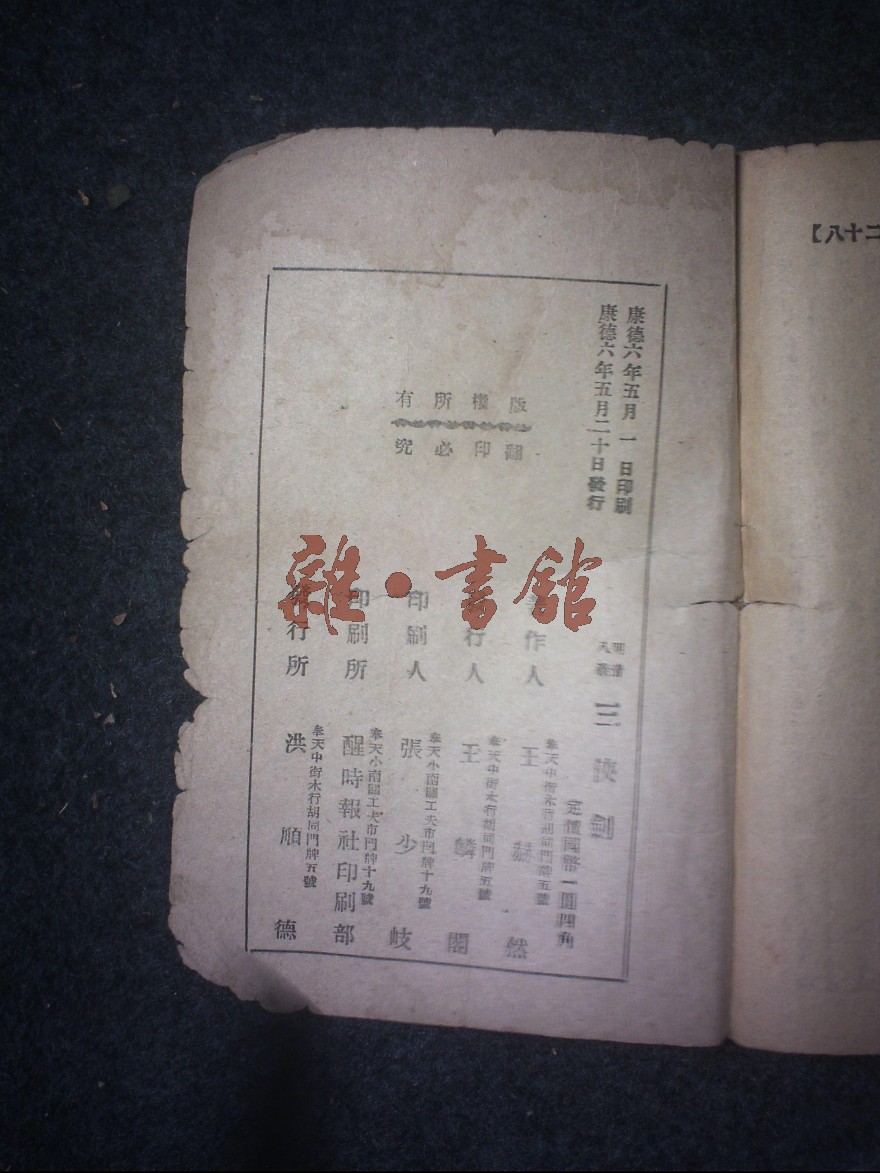 二十八】
康德六年五月一日印刷
康德六年五月二十日發行
版權所有
翻印必究
明清
三俠劍
定價國幣一圓四角
著作人
奉天中街木行胡同門牌五號
王 然
發行人
奉天中街木行胡同門牌五號
王麟閣
印刷人
奉天小南關工夫市門牌十九號
張少岐
印刷所
奉天小南關工夫市門牌十九號
醒時報社印刷部
發行所
奉天中街木行胡同門牌五號
洪順德
雜·書館